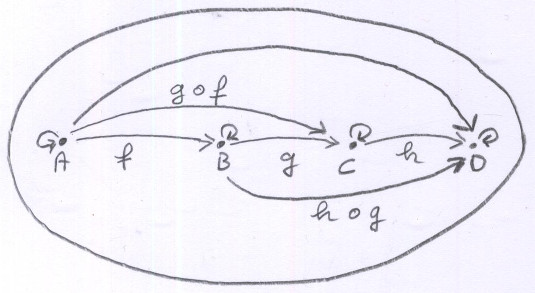 g o f
A f B g C h D
h o g